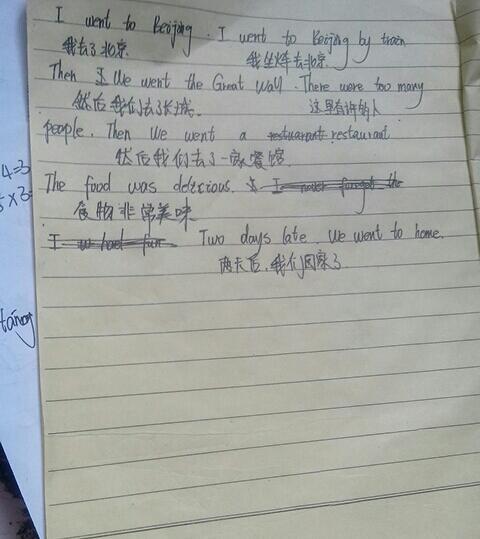 I went to Beijing. I went to Beijing by train
我去了北京. 我坐火车去北京.
Then I We went the Great Wall. There were too many
然后我们去长城. 这里有许多人
people. Then We went a restuarant restaurant
然后我们去了一家餐馆
4=3
The food was delecious. I never forget the
5×3
食物非常美味
I w had fun Two days late. We went to home.
两天后,我们回家了